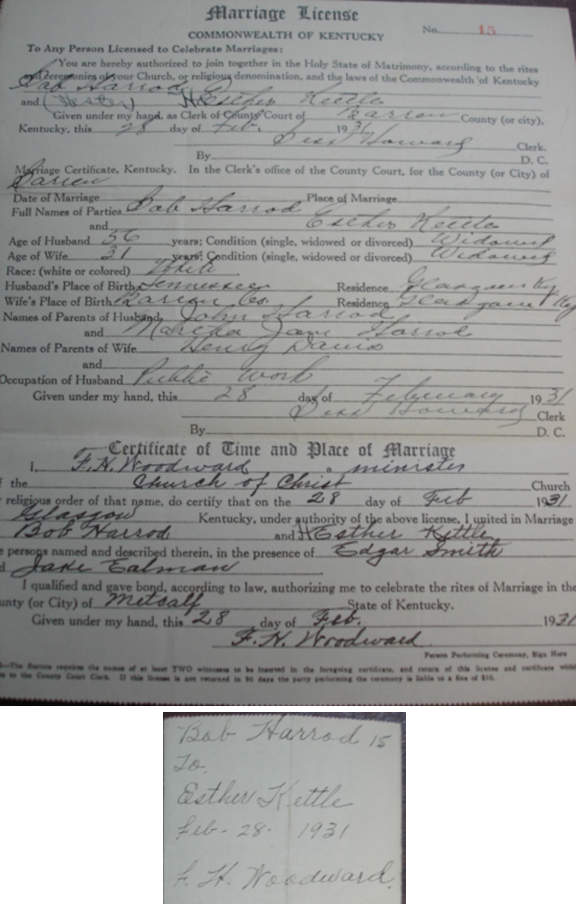 Marriage License
COMMONWEALTH OF KENTUCKY
No. 15
To Any Person Licensed to Celebrate Marriages:
You are hereby authorized to join together in the Holy State of Matrimony, according to the rites
and ceremonies of your Church, or religious denomination, and the laws of the Commonwealth of Kentucky
Bob Harrod
and (Hester) Esther Kettle
Given under my hand, as Clerk of County Court of Barren County (or city),
Kentucky, this 28 day of Feb. 1931
Bess Howard Clerk.
By D. C.
Marriage Certificate, Kentucky. In the Clerk's office of the County Court, for the County (or City) of
Barren
Date of Marriage Place of Marriage
Full Names of Parties Bob Harrod
and Esther Kettle
Age of Husband 56 years; Condition (single, widowed or divorced) Widowed
Age of Wife 31 years; Condition (single, widowed or divorced) Widowed
Race: (white or colored) White
Husband's Place of Birth Tennessee Residence Glasgow Ky
Wife's Place of Birth Barren Co. Residence Glasgow Ky
Names of Parents of Husband John Harrod
and Martha Jane Harrod
Names of Parents of Wife Henry Davis
and
Occupation of Husband Public Work
Given under my hand, this 28 day of February 1931
Bess Howard Clerk
By D. C.
Certificate of Time and Place of Marriage
I, F. H. Woodward a minister
the Church of Christ Church
religious order of that name, do certify that on the 28 day of Feb 1931
Glasgow Kentucky, under authority of the above license, I united in Marriage
Bob Harrod and Hesther Kettle
persons named and described therein, in the presence of Edgar Smith
Jake Eatman
I qualified and gave bond, according to law, authorizing me to celebrate the rites of Marriage in the
unty (or City) of Metcalf State of Kentucky.
Given under my hand, this 28 day of Feb. 1931
F. H. Woodward
Person Performing Ceremony, Sign Here
The Statute requires the names of at least TWO witnesses to be inserted in the foregoing certificate, and return of this license and certificate
to the County Court Clerk. If this license is not returned in 90 days the party performing the ceremony is liable to a fine of $10.
Bob Harrod 15
To.
Esther Kettle
Feb. 28. 1931
F. H. Woodward.